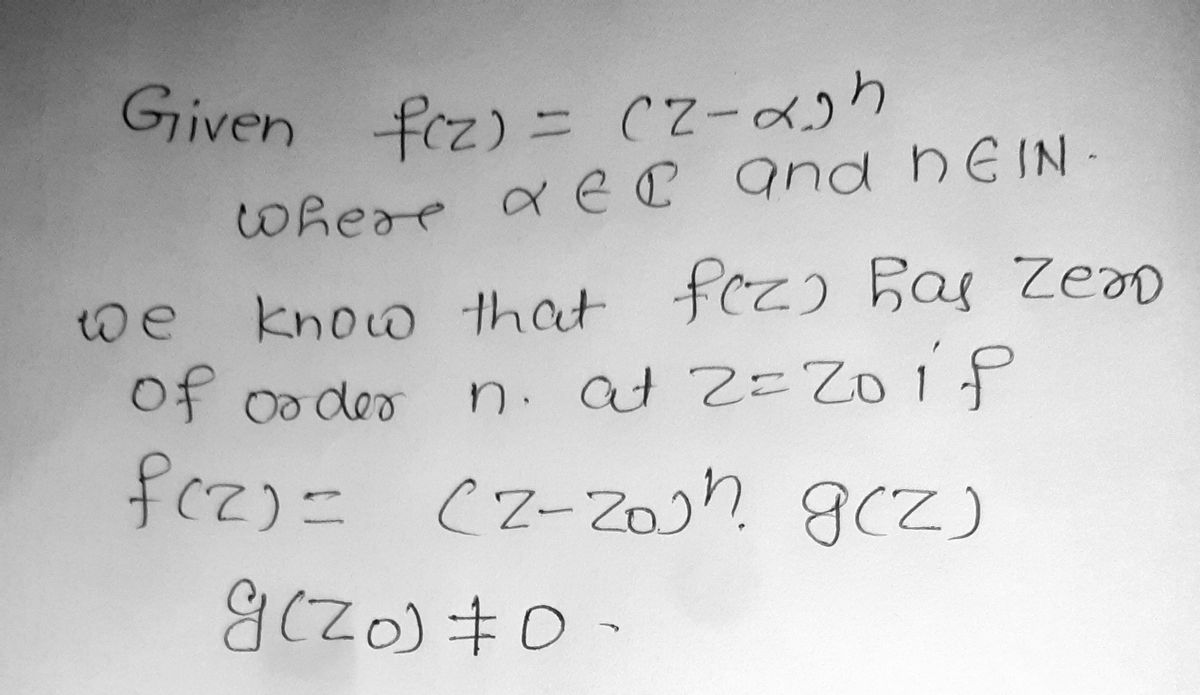 Given f(z) = (z-α)ⁿ
where α ∈ ℂ and n ∈ IN.
we know that f(z) has zero
of order n. at z=z₀ if
f(z) = (z-z₀)ⁿ. g(z)
g(z₀) ≠ 0.